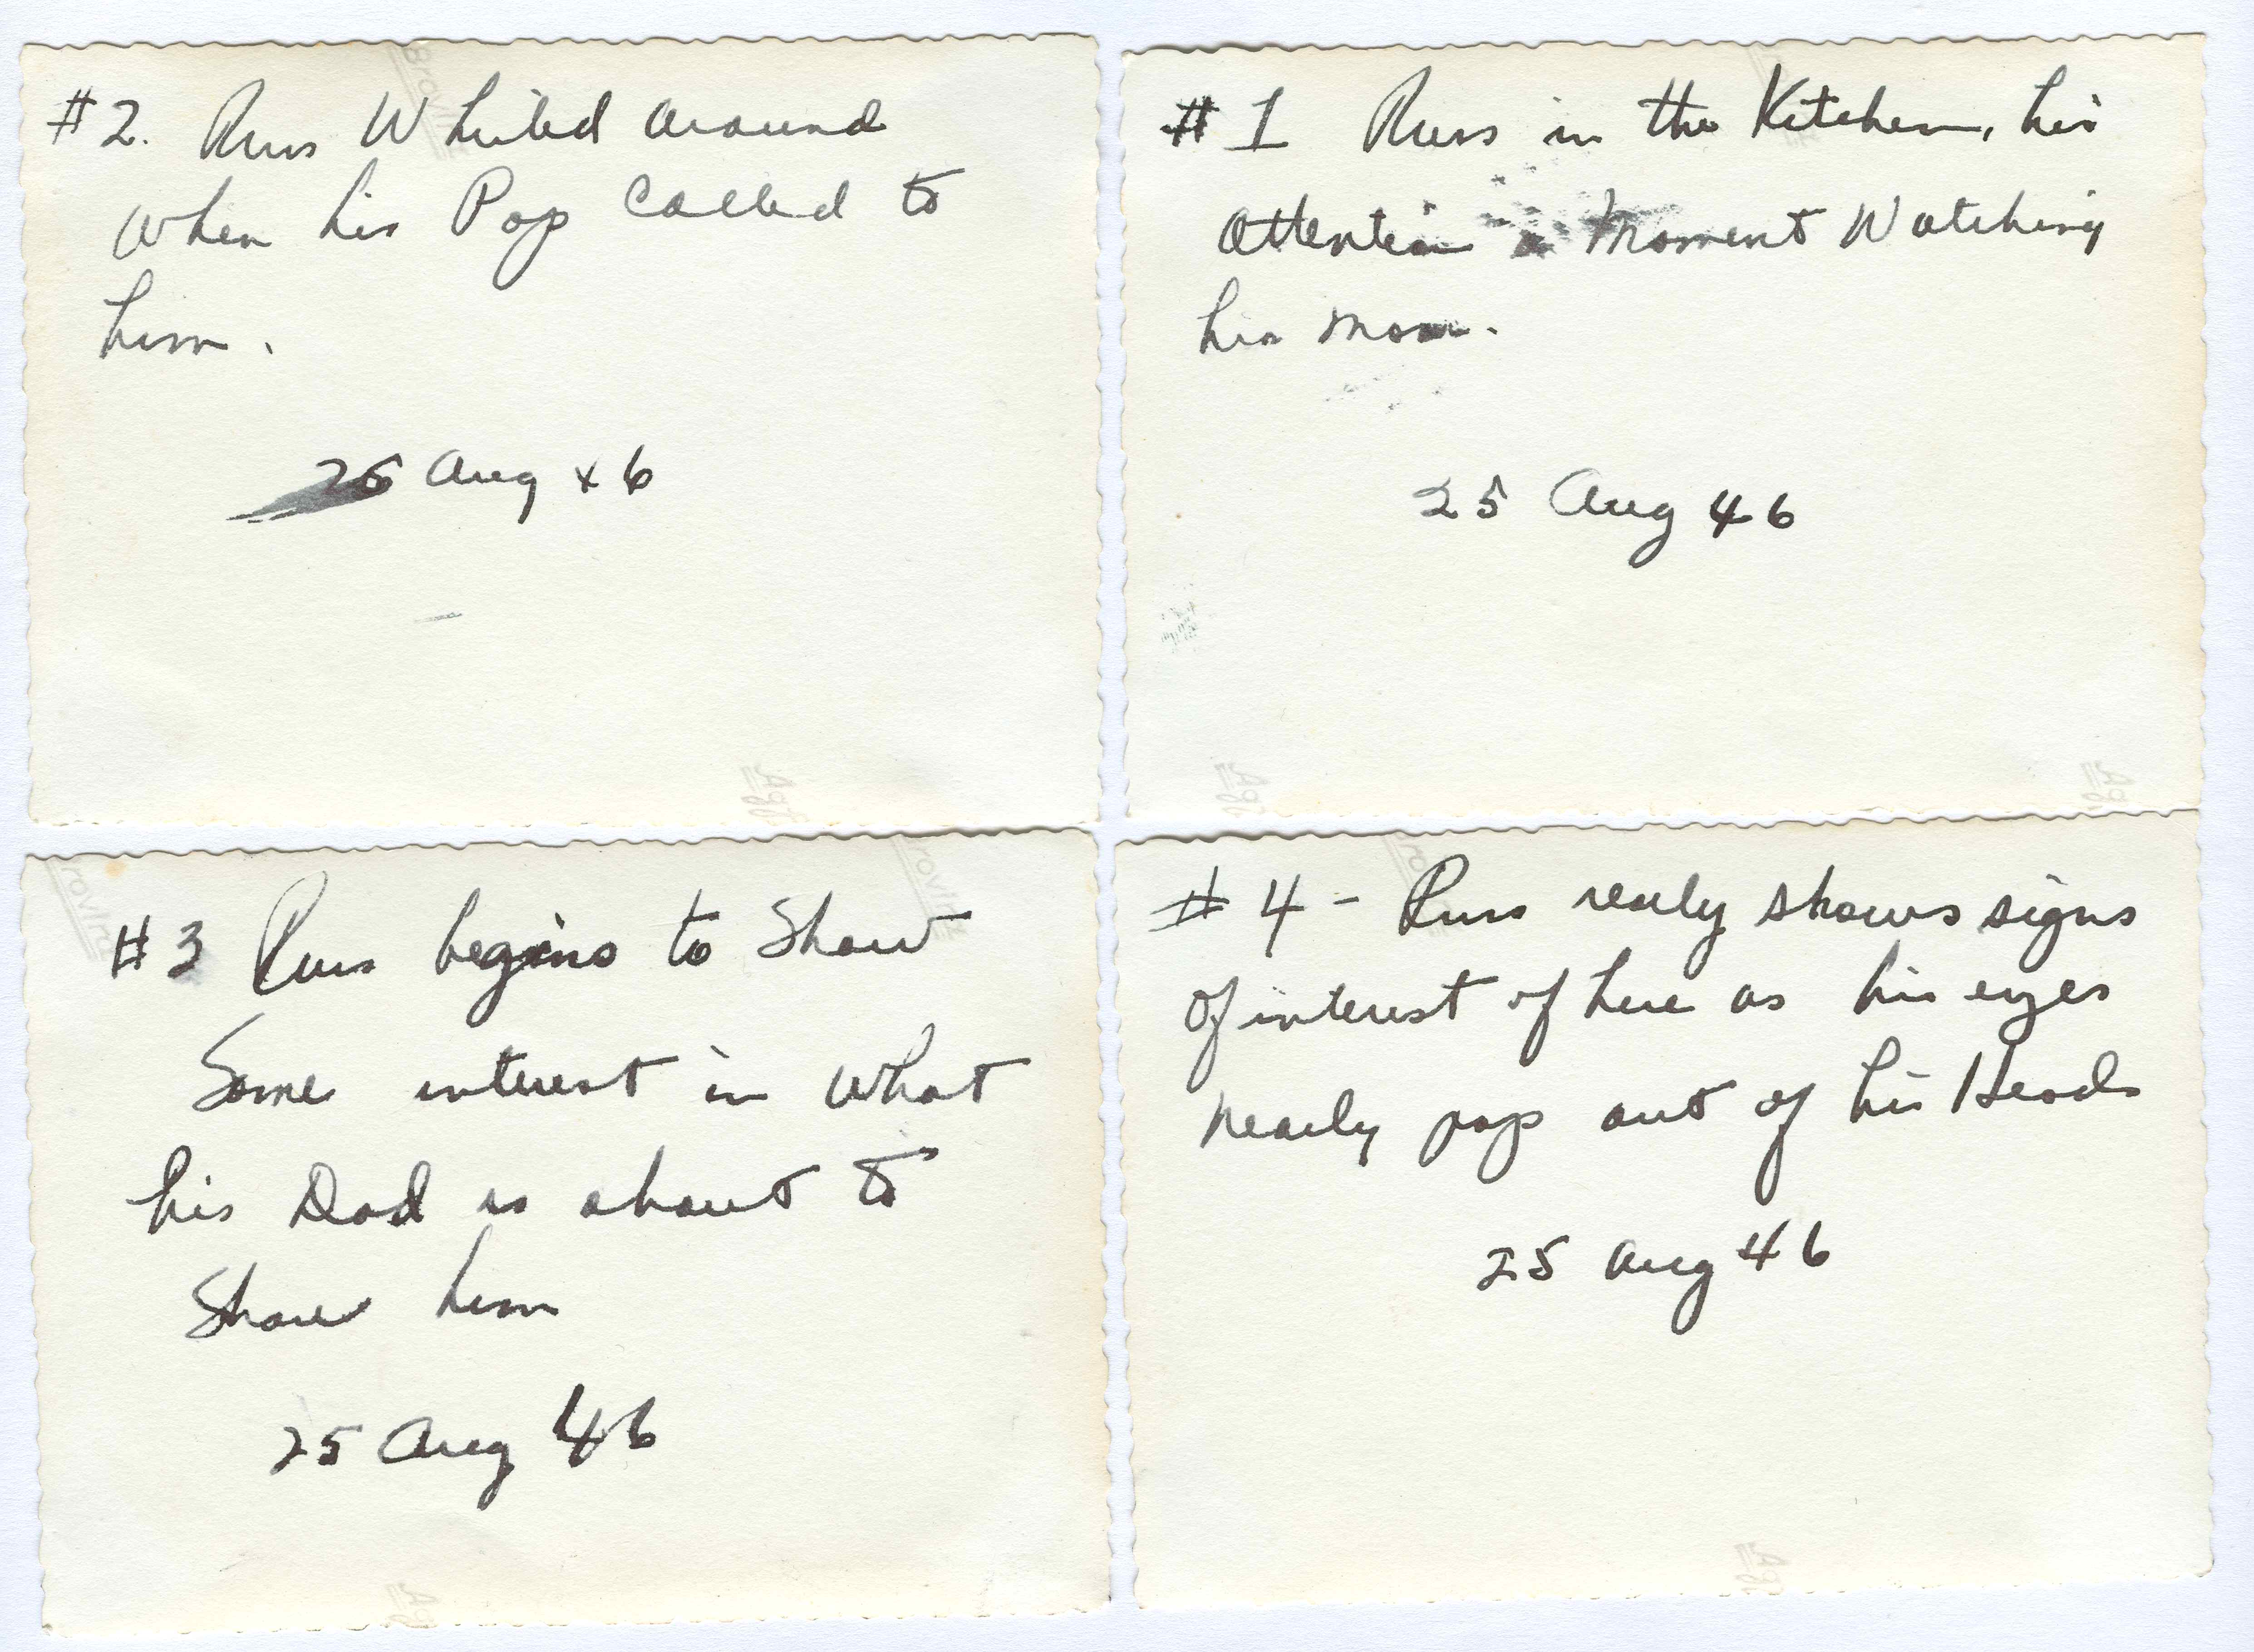 #2. Russ Whirled around
when his Pop called to
him.
25 Aug 46
#1 Russ in the Kitchen, his
attention a moment Watching
his mom.
25 Aug 46
#3 Russ begins to Show
Some interest in what
his Dad is about to
Show him
25 Aug 46
#4 - Russ really shows signs
Of interest of here as his eyes
nearly pop out of his Head
25 Aug 46